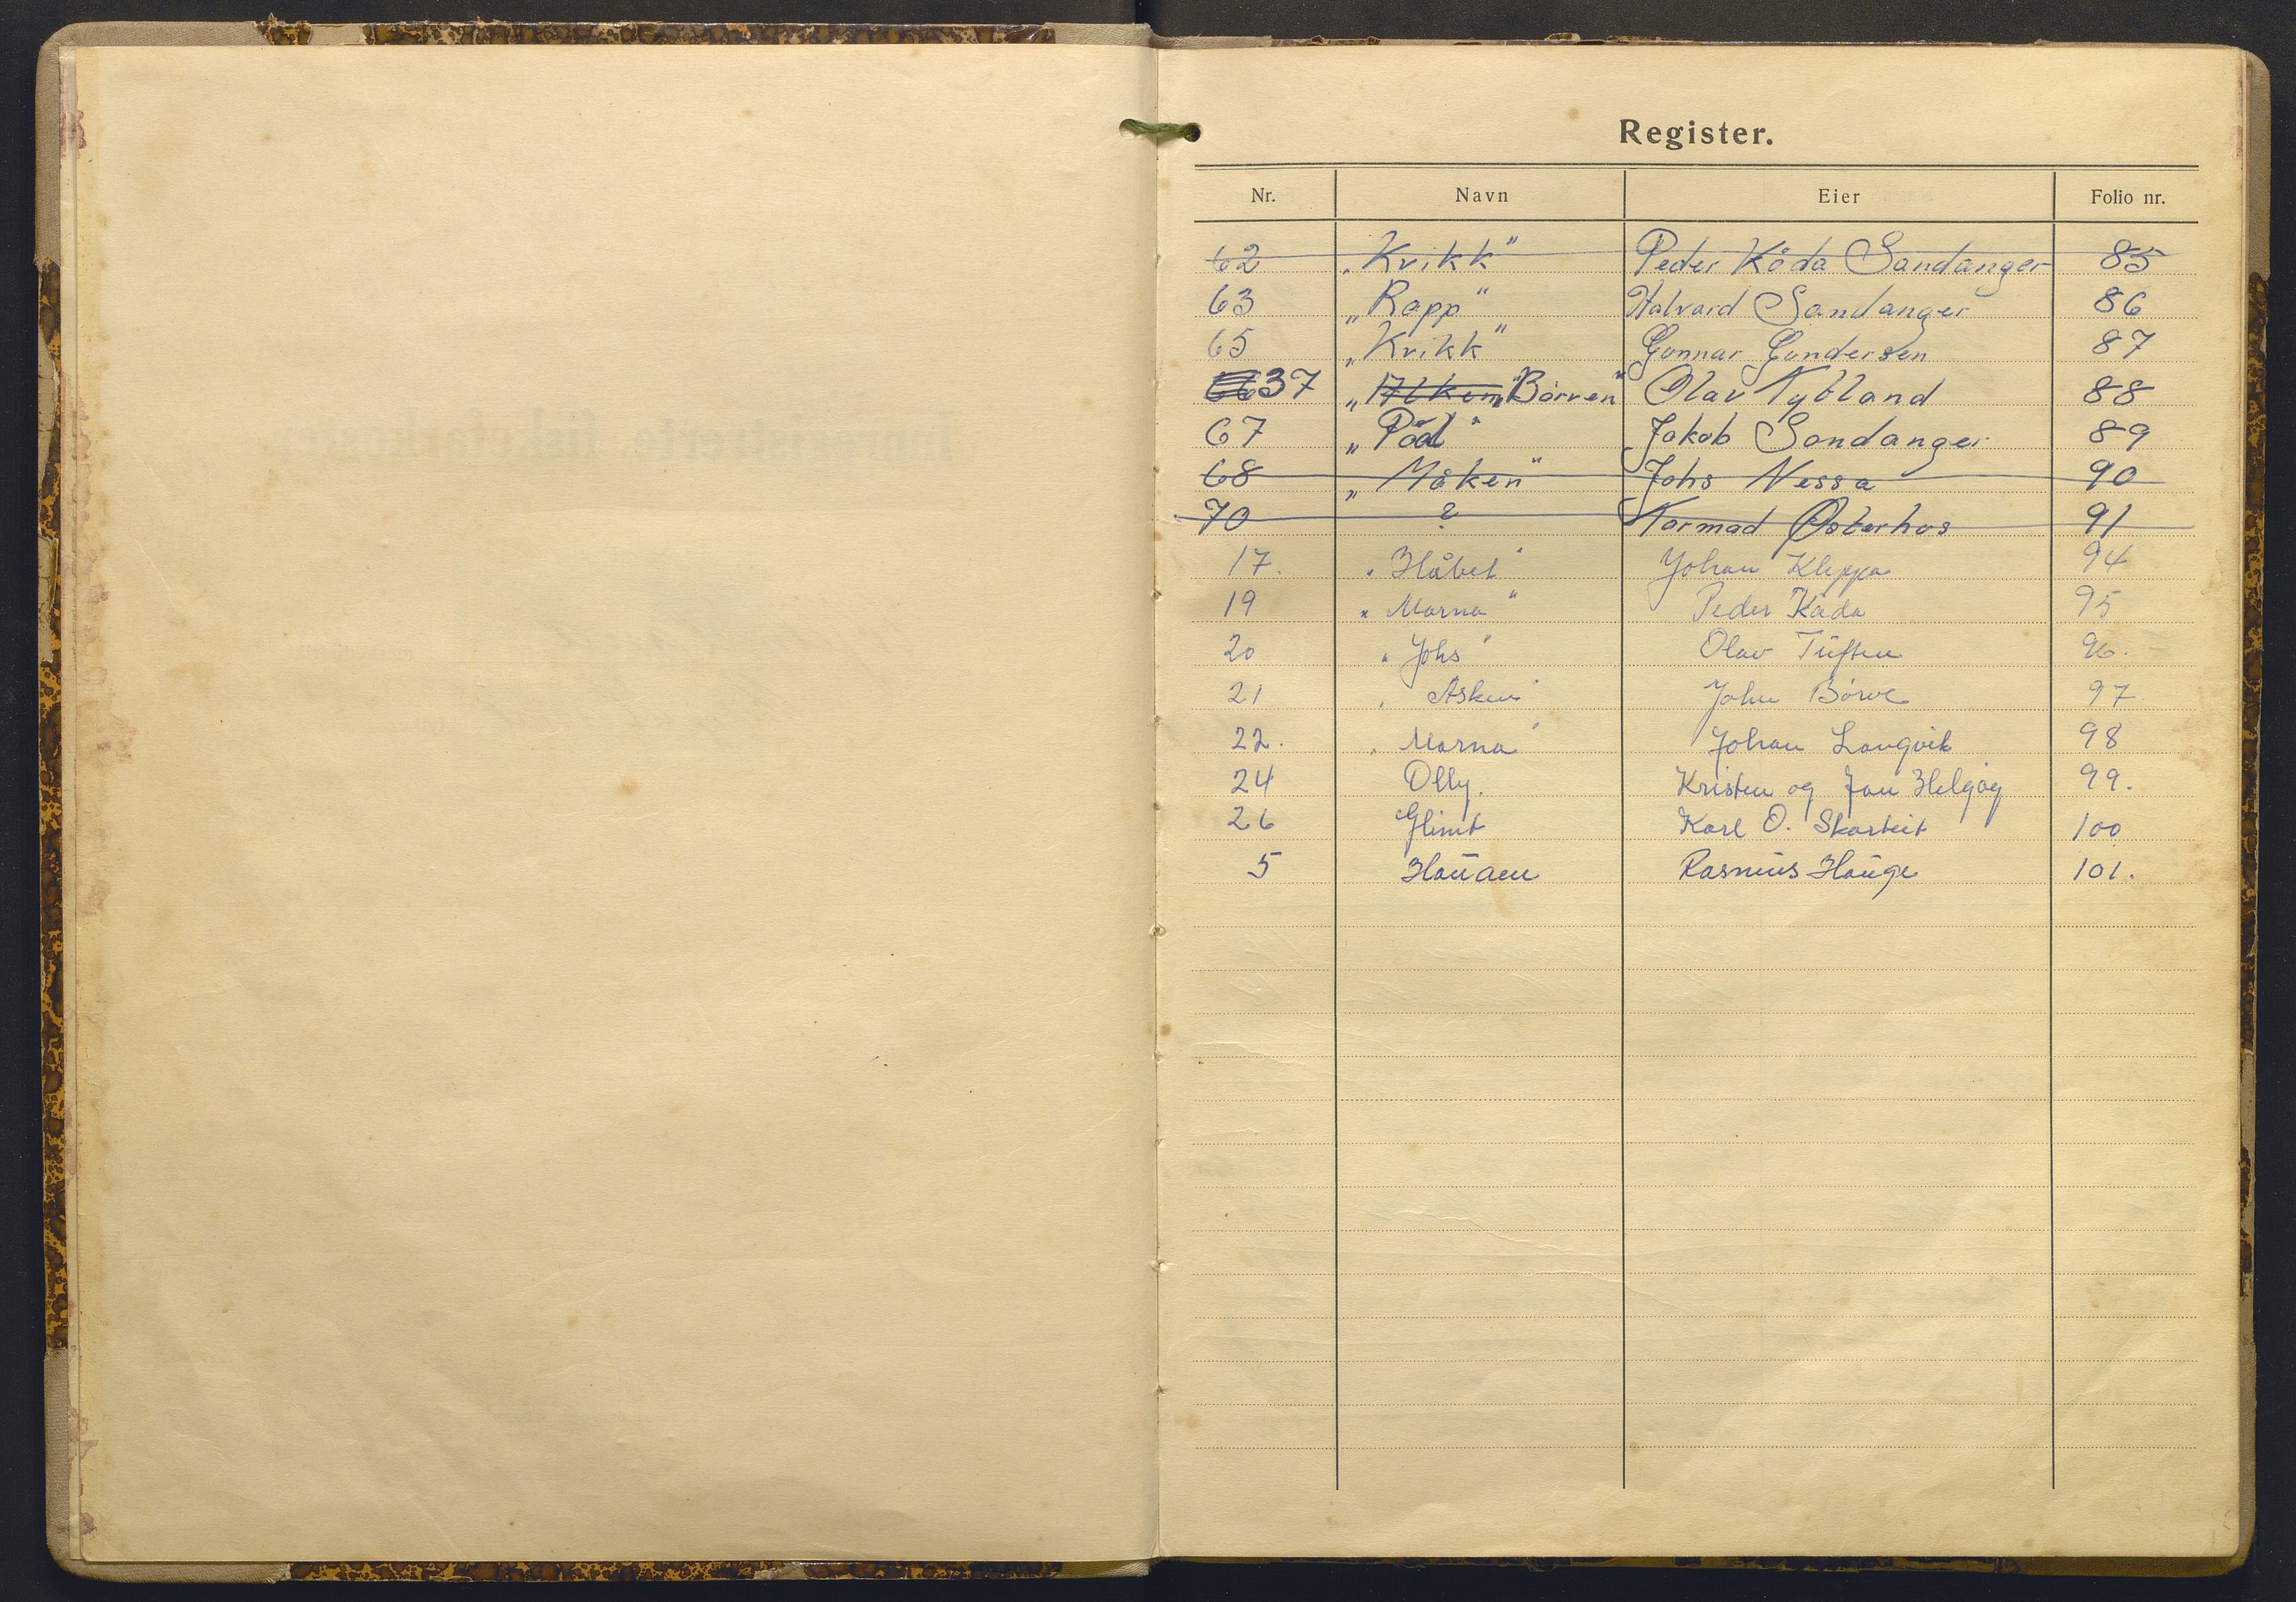 Register.
Nr. Navn Eier Folio nr.
62 "Kvikk" Peder Kåda Sandanger 85
63 "Rapp" Halvard Sandanger 86
65 "Kvikk" Gunnar Gundersen 87
37 "Alken" "Børven" Olav Nybland 88
67 "Pål" Jakob Sandanger 89
68 "Måken" Johs Nessa 90
70 ? Normad Østerhus 91
17. "Håbet" Johan Kleppa 94
19 "Marna" Peder Kåda 95
20 "Johs" Olav Tuften 96.
21 "Asken" John Børve 97
22. "Marna" Johan Langvik 98
24 Olly. Kristen og Jan Helgøy 99.
26 Glimt Karl O. Skarteit 100
5 Rasmus Hauge 101.